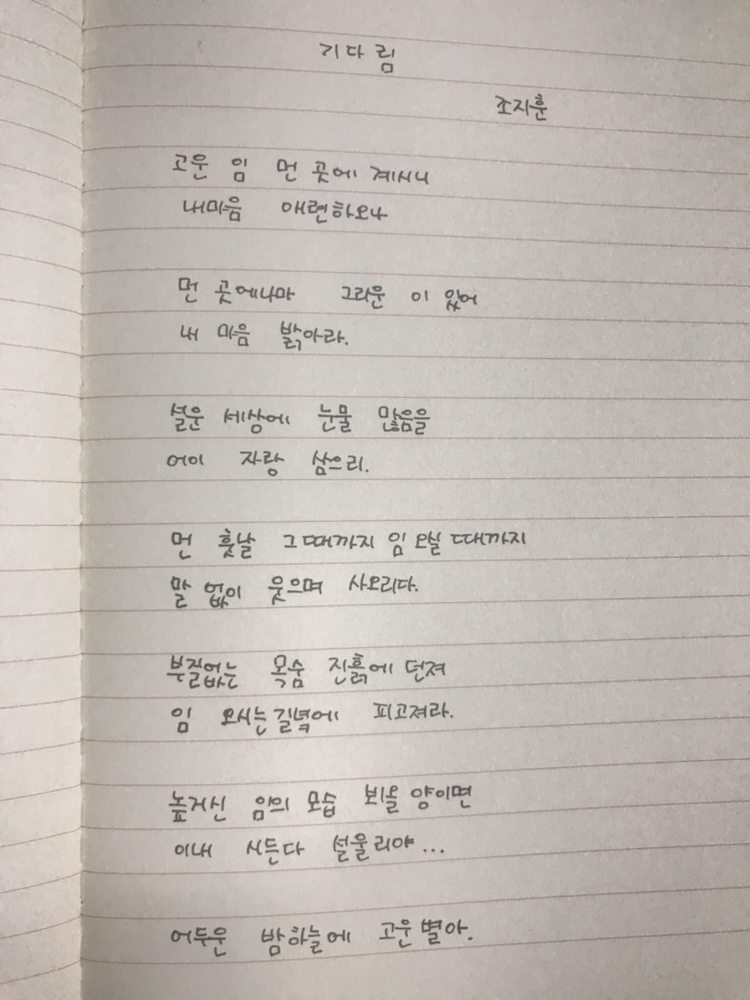 기다림
조지훈
고운 임 먼 곳에 계시니
내마음 애련하오나
먼 곳에나마 그리운 이 있어
내 마음 밝아라.
설운 세상에 눈물 많음을
어이 자랑 삼으리.
먼 훗날 그때까지 임 오실 때까지
말 없이 웃으며 사오리다.
부질없는 목숨 진흙에 던져
임 오시는길녘에 피고져라.
높거신 임의 모습 뵈올 양이면
이내 시든다 설울리야...
어두운 밤하늘에 고운별아.